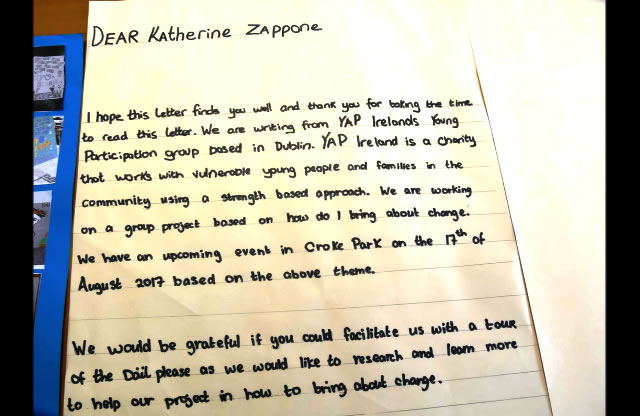 DEAR Katherine ZAPPONE
I hope this letter finds you well and thank you for taking the time
to read this letter. We are writing from YAP Irelands Young
Participation group based in Dublin. YAP Ireland is a charity
that works with vulnerable young people and families in the
community using a strength based approach. We are working
on a group project based on how do I bring about change.
We have an upcoming event in Croke Park on the 17th of
August 2017 based on the above theme.
We would be grateful if you could facilitate us with a tour
of the Dail please as we would like to research and learn more
to help our project in how to bring about change.